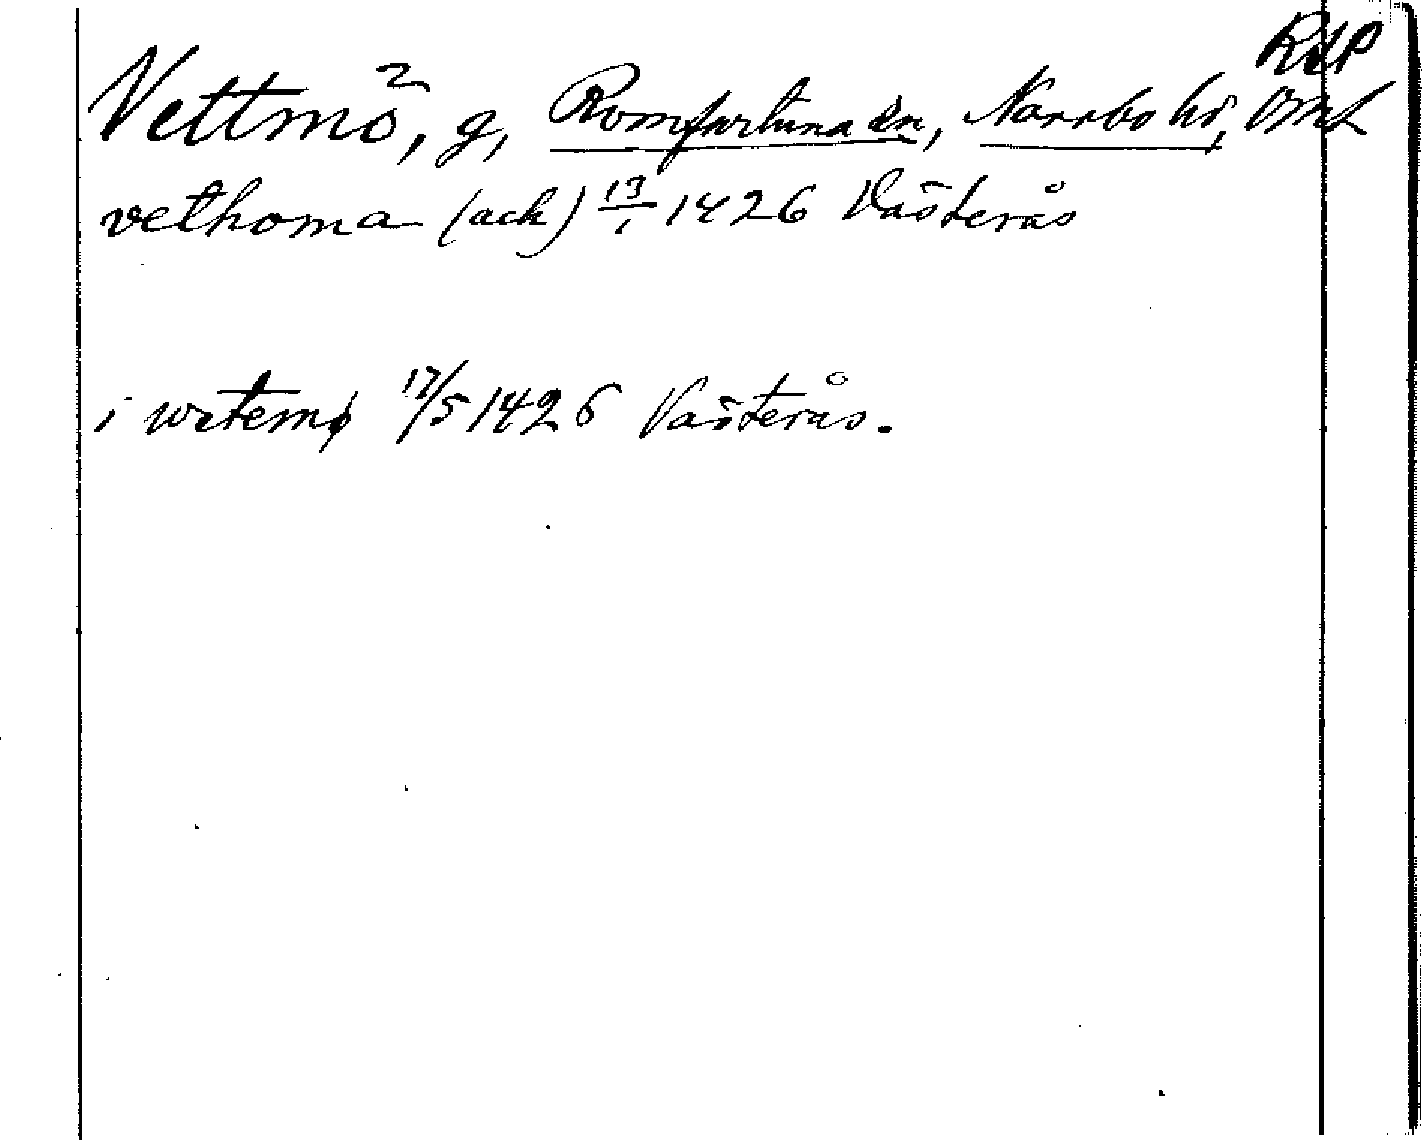 RdP
Vettmo, g, Romfartuna sn, Norrbo hd, Vml
vethoma (ack) 13/1 1426 Västerås
i wetemø 17/5 1426 Västerås.